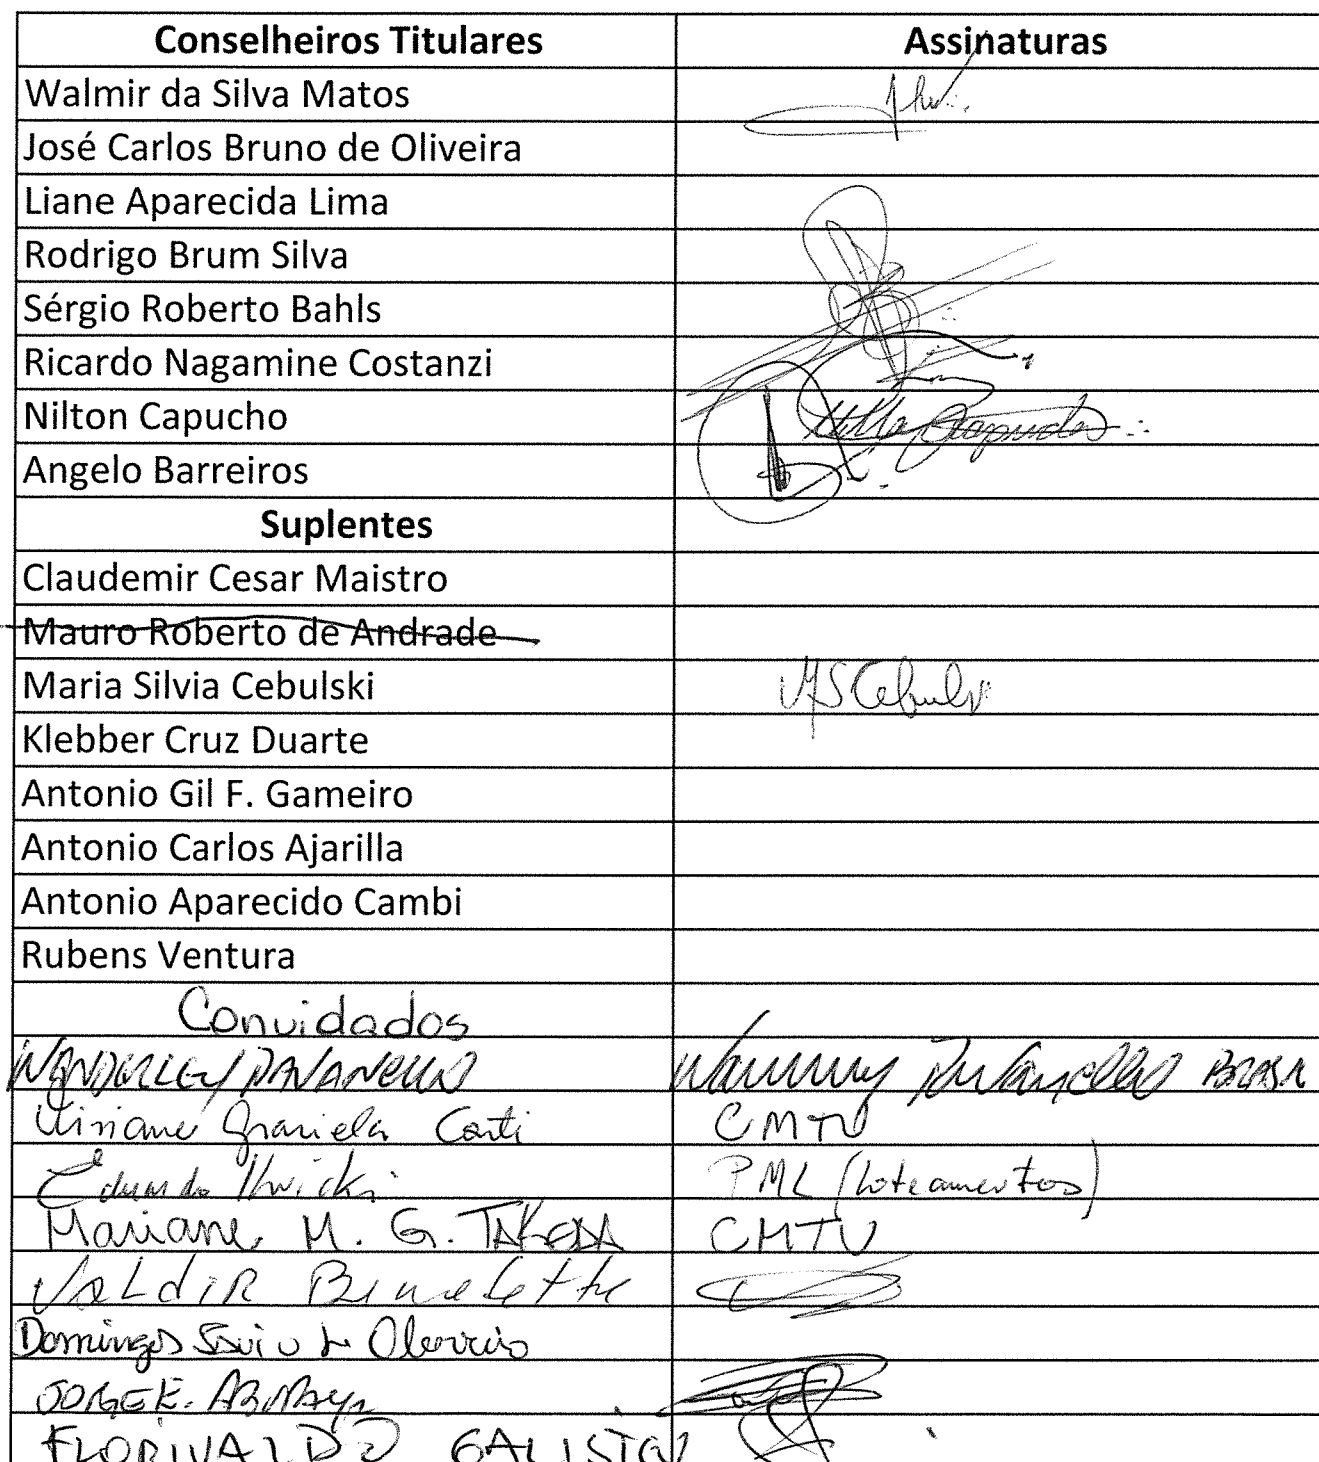 Conselheiros Titulares Assinaturas
Walmir da Silva Matos
José Carlos Bruno de Oliveira
Liane Aparecida Lima
Rodrigo Brum Silva
Sérgio Roberto Bahls
Ricardo Nagamine Costanzi
Nilton Capucho
Angelo Barreiros
Suplentes
Claudemir Cesar Maistro
Mauro Roberto de Andrade
Maria Silvia Cebulski MSCebulski
Klebber Cruz Duarte
Antonio Gil F. Gameiro
Antonio Carlos Ajarilla
Antonio Aparecido Cambi
Rubens Ventura
Convidados
WANDERLEY PAVANELLO
Viviane Graziela Conti CMTU
Eduardo PML (Loteamentos)
Mariane M. G. TAKEDA CMTU
VALdIR
Domingos Savio
JORGE E.
FLORIVALDO